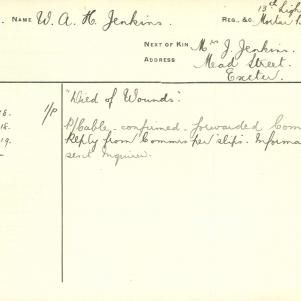 NAME W. A. H. Jenkins. REG. &c. 13th Ligh
Morter B
NEXT OF KIN Mrs J. Jenkins.
ADDRESS Mead Street.
Exeter.
1/P "Died of Wounds".
18. P/Cable confirmed. forwarded Com
19. Reply from Commrs per slip. Informa
sent inquirer.